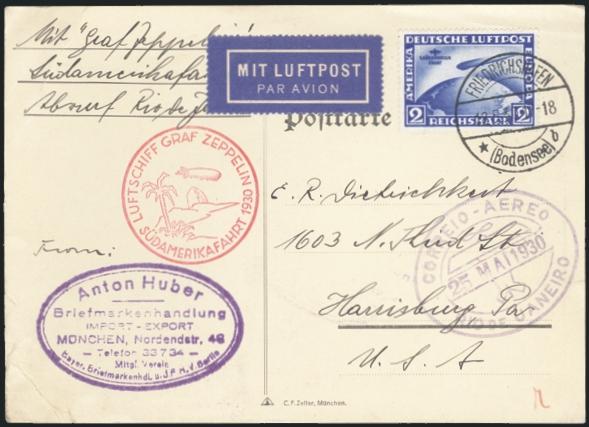 Mit "Graf Zeppelin"
Südamerikafa
Abwurf Rio de
MIT LUFTPOST
PAR AVION
DEUTSCHE LUFTPOST
AMERIKA
EUROPA
SÜDAMERIKA
FAHRT
2 REICHSMARK 2
FRIEDRICHSHAFEN
-18
(Bodensee) b
Postkarte
LUFTSCHIFF GRAF ZEPPELIN
SÜDAMERIKAFAHRT 1930
E. R.
1603 N. Third St.
Harrisburg Pa.
U. S. A
CORREIO-AEREO
25 MAI 1930
RIO DE JANEIRO
From:
Anton Huber
Briefmarkenhandlung
IMPORT - EXPORT
MÜNCHEN, Nordendstr. 46
— Telefon 33734 —
Mitgl. Verein
Bayer. Briefmarkenhdl. u. J. P. H. V. Berlin
C. F. Zeller, München.